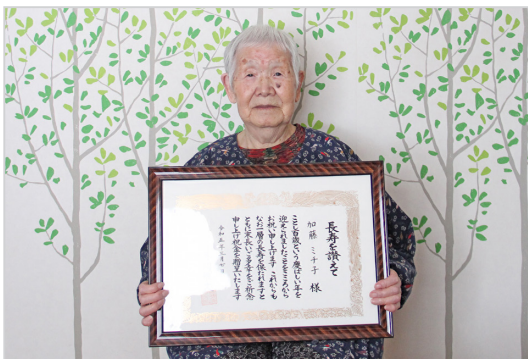 長寿を讃えて
加藤 ミチ子 様
ことし百歳という慶ばしい年を
迎えられましたことを心から
お祝い申し上げます これからも
なお一層の長寿を保たれますと
ともに末長いご多幸をご祈念
申し上げ祝金を贈呈いたします